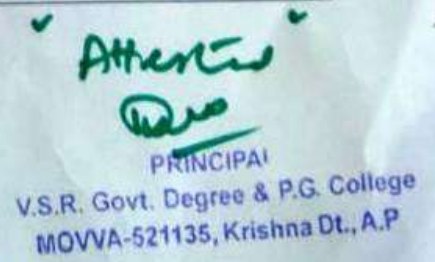 "Attested"
PRINCIPAL
V.S.R. Govt. Degree & P.G. College
MOVVA-521135, Krishna Dt., A.P